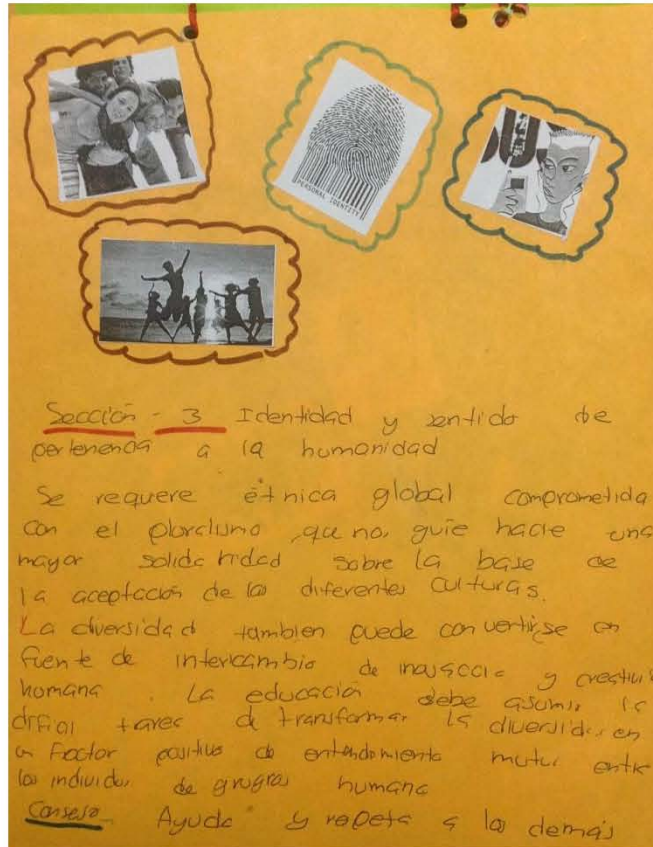 PERSONAL IDENTITY
OU
Sección - 3 Identidad y sentido de
pertenencia a la humanidad
Se requere étnica global comprometida
con el pluralismo, que nos guie hacie una
mayor solidaridad sobre la base de
la aceptación de las diferentes culturas.
La diversidad tambien puede convertirse en
fuente de intercambio de y creativi
humana. La educación debe asumir la
dificil tarea de transformar la diversidad en
un factor positivo de entendimiento mutuo entre
los individuos de humana
Consejo Ayuda y respeta a los demás